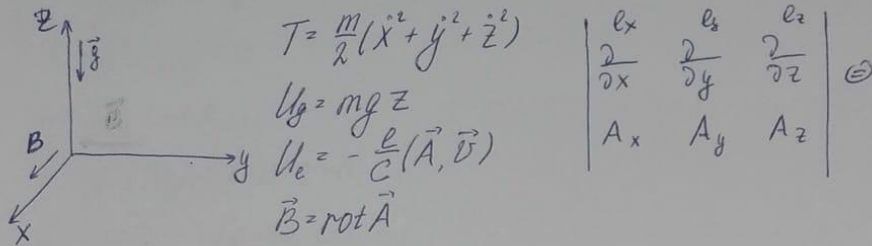 Z
g⃗
B
y
x
T = m/2 (ẋ² + ẏ² + ż²)
U_g = mgz
U_e = - e/c (A⃗, v⃗)
B⃗ = rot A⃗
| e_x e_y e_z |
| ∂/∂x ∂/∂y ∂/∂z | ⊜
| A_x A_y A_z |